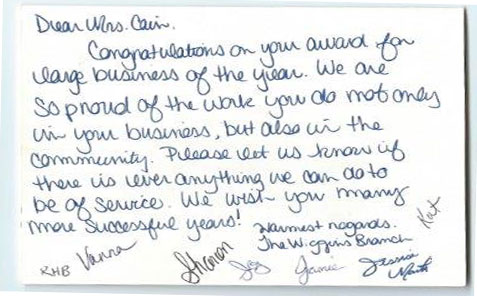 Dear Mrs. Cain.
Congratulations on your award for
large business of the year. We are
so proud of the work you do not only
in your business, but also in the
community. Please let us know if
there is ever anything we can do to
be of service. We wish you many
more successful years!
Warmest regards.
The Wiggins Branch
Kat
KHB Vanna Sharon Joy Jamie Jessica